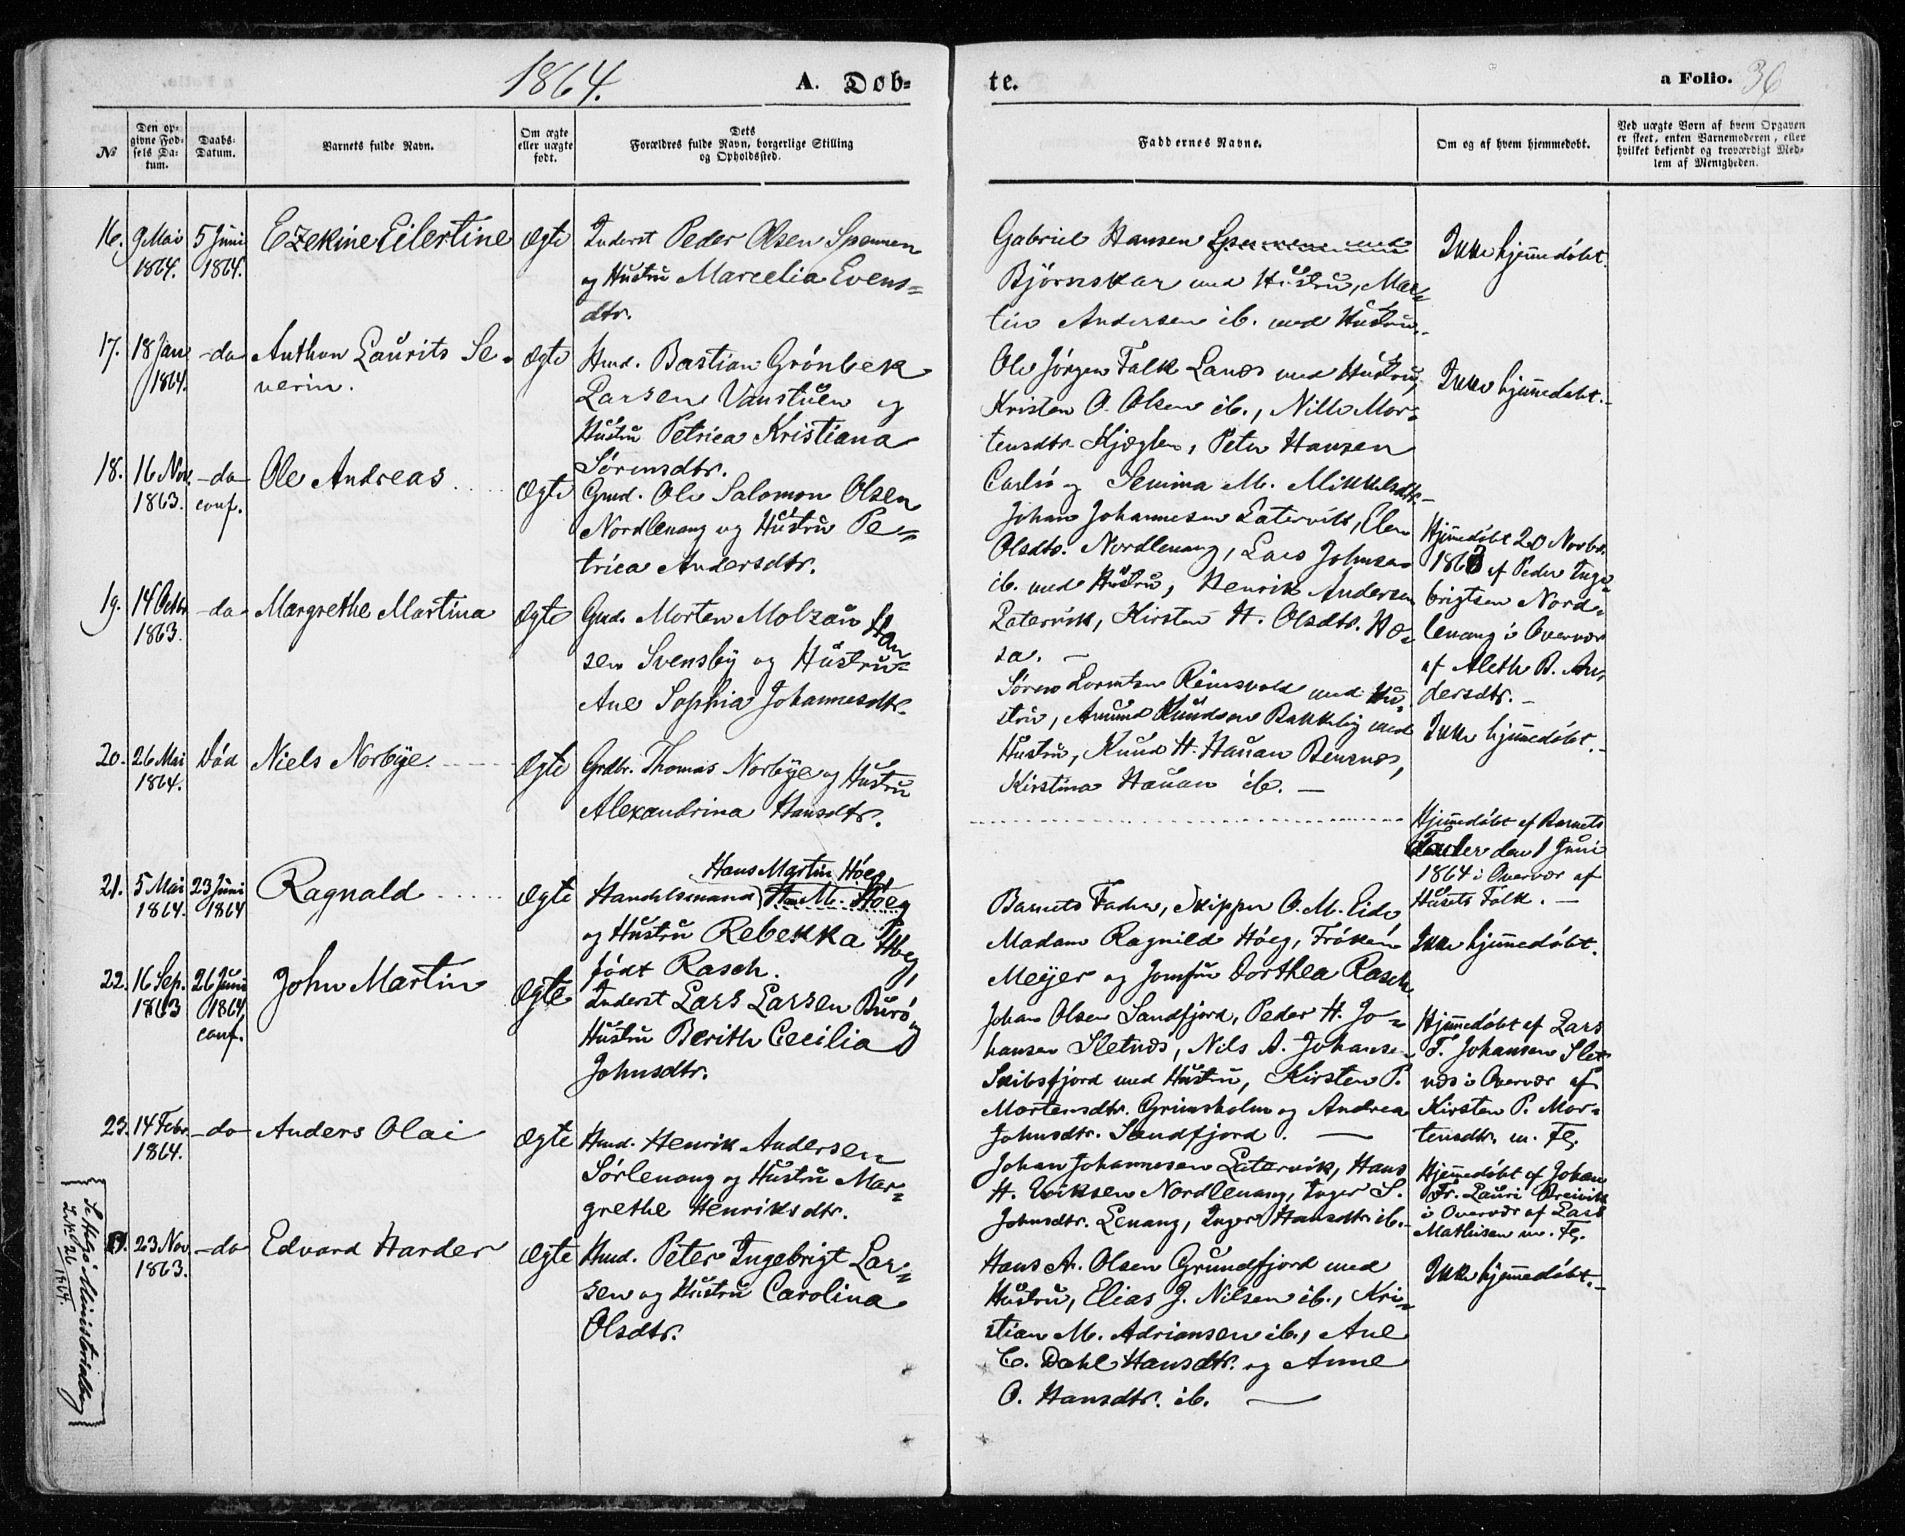 1864.
A. Døb-
te.
a Folio. 36
№
Den op-
givne Fød-
sels Da-
tum.
Daabs-
Datum.
Barnets fulde Navn.
Om ægte
eller uægte
født.
Dets
Forældres fulde Navn, borgerlige Stilling
og Opholdssted.
Faddernes Navne.
Om og af hvem hjemmedøbt.
Ved uægte Børn af hvem Opgaven
er skeet, enten Barnemoderen, eller
hvilket bekjendt og troværdigt Med-
lem af Menigheden.
16. 9 Mai
1864.
5 Juni
1864.
Ezekine Eilertine
Ægte
Inderst Peder Olsen Spennen
og Hustru Marcelia Evens-
dtr.
Gabriel Hansen
Björnskar med Hustru, Mar-
tin Andersen ib. med Hustru.
Ikke hjemmedøbt.
17. 18 Jan
1864.
-do
Anthon Laurits Se-
verin.
Ægte
Hmd. Bastian Grönbek
Larsen Vanstuen og
Hustru Petrica Kristiana
Sörensdtr.
Ole Jörgen Falk Lanæs med Hustru,
Kristen O. Olsen ib., Nille Mor-
tensdtr. Kjæglen, Peter Hansen
Carlsö og Semina M. Mikkelsdtr.
Ikke hjemmedøbt.
18. 16 Nov.
1863.
-do
conf.
Ole Andreas
Ægte
Gmd. Ole Salomon Olsen
Nordlenang og Hustru Pe-
trica Andersdtr.
Johan Johannesen Latervik, Elen
Olsdtr. Nordlenang, Lars Johnsen
ib. med Hustru, Henrik Andersen
Latervik, Kirsten H. Olsdtr. Hæ-
sa.
Hjemmedøbt 20 Novbr.
1863 af Peder Inge-
brigtsen Nord-
lenang i Overvær
af Aleth B. An-
dersdtr.
19. 14 Octbr
1863.
-do
Margrethe Martina
Ægte
Gmd. Morten Molzau Han
sen Svensby og Hustru
Ane Sophia Johannesdtr.
Sören Lorentsen Reinsvold med Hu-
stru, Amund Knudsen Bakkeby med
Hustru, Knud H. Hauan Bensnæs,
Kirstina Hauan ib.
Ikke hjemmedøbt.
20. 26 Mai
1864.
Död
Niels Norbye.
Ægte
Grdbr. Thomas Norbye og Hustru
Alexandrina Hansdtr.
Hjemmedøbt af Barnets
Fader den 1 Juni
1864 i Overvær af
Husets Folk.
21. 5 Mai
1864.
23 Juni
1864
Ragnald
Ægte
Hans Martin Höeg,
Handelsmand H. M. Höeg
og Hustru Rebekka Höeg,
födt Rasch.
Barnets Fader, Skipper O. M. Eide
Madam Ragnild Höeg, Fröken
Meyer og Jomfru Dorthea Rasch
Ikke hjemmedøbt.
22. 16 Sep.
1863
26 Juni
1864
conf.
John Martin
Ægte
Inderst Lars Larsen Burö og
Hustru Berith Cecilia
Johnsdtr.
Johan Olsen Sandfjord, Peder H. Jo-
hansen Sletnæs, Nils A. Johansen
Skibsfjord med Hustru, Kirsten P.
Mortensdtr. Grimsholm og Andrea
Johnsdtr. Sandfjord.
Hjemmedøbt af Lars
F. Johansen Slet-
næs i Overvær af
Kirsten P. Mor-
tensdtr. m. Fl.
23. 14 Febr.
1864.
-do
Anders Olai
Ægte
Hmd. Henrik Andersen
Sörlenang og Hustru Mar-
grethe Henriksdtr.
Johan Johannesen Latervik, Hans
H. Eriksen Nordlenang, Inger S.
Johnsdtr. Lenang, Inger Hansdtr. ib.
Hjemmedøbt af Johan
Fr. Lauri Breivik
i Overvær af Lars
Mathisen m. Fl.
23 Nov.
1863.
-do
Edvard Harder
Ægte
Hmd. Peter Ingebrigt Lar-
sen og Hustru Carolina
Olsdtr.
Hans A. Olsen Grundfjord med
Hustru, Elias J. Nilsen ib., Kri-
stian M. Adriansen ib., Ane
C. Dahl Hansdtr. og Anne
O. Hansdtr. ib.
Ikke hjemmedøbt.
1864.